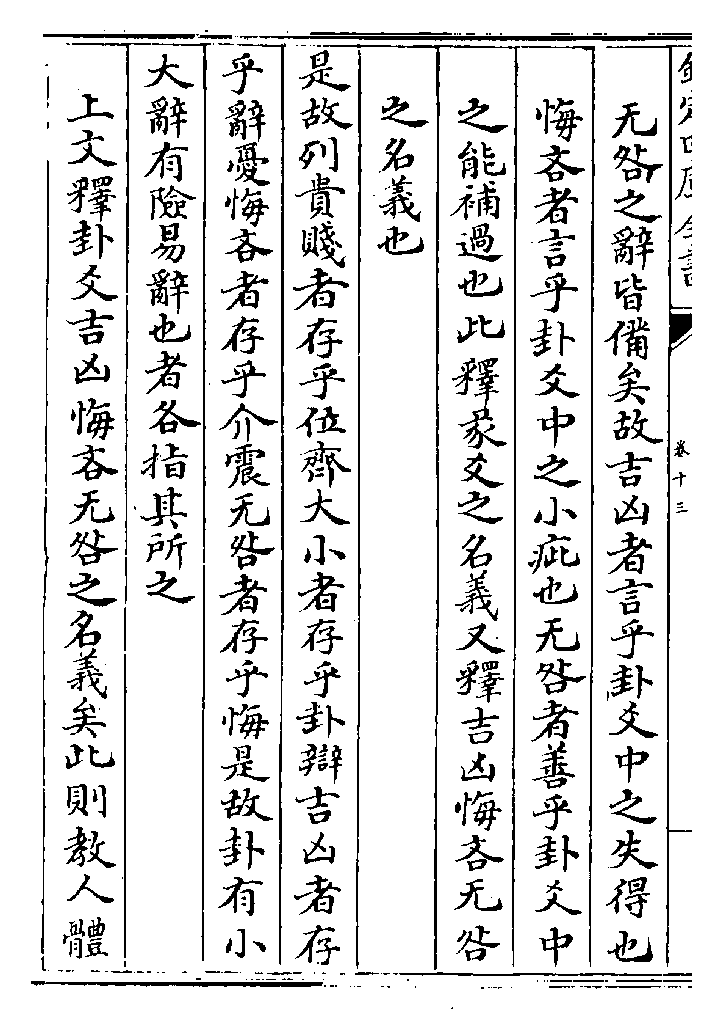 欽定四庫全書
卷十三
无咎之辭皆備矣故吉凶者言乎卦爻中之失得也
悔吝者言乎卦爻中之小疵也无咎者善乎卦爻中
之能補過也此釋彖爻之名義又釋吉凶悔吝无咎
之名義也
是故列貴賤者存乎位齊大小者存乎卦辯吉凶者存
乎辭憂悔吝者存乎介震无咎者存乎悔是故卦有小
大辭有險易辭也者各指其所之
上文釋卦爻吉凶悔吝无咎之名義矣此則教人體